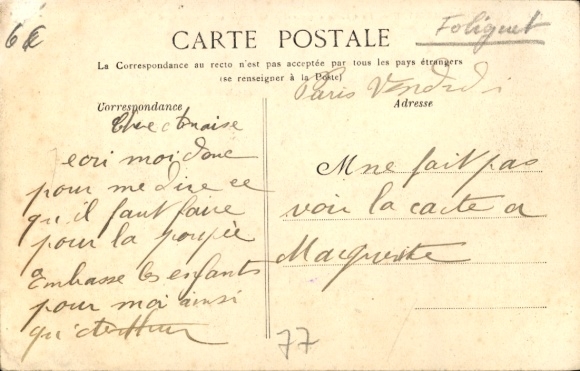 6€
Foliguet
CARTE POSTALE
La Correspondance au recto n'est pas acceptée par tous les pays étrangers
(se renseigner à la Poste)
Paris Vendredi
Correspondance
Adresse
Chère
ecri moi donc
pour me dire ce
qu'il faut faire
pour la poupée
Embrasse les enfants
pour moi ainsi
Mne fait pas
voir la carte a
Marguerite
77